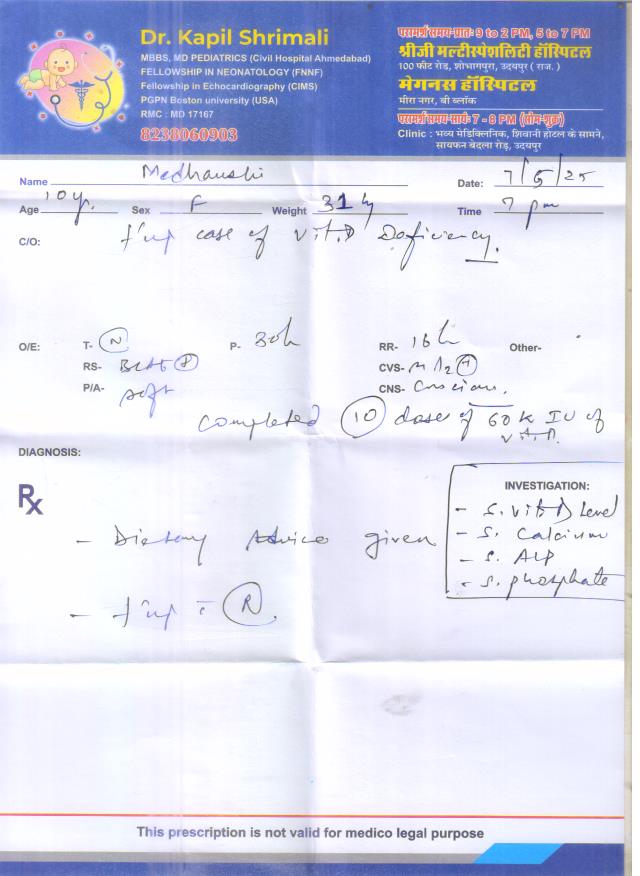 Dr. Kapil Shrimali
MBBS, MD PEDIATRICS (Civil Hospital Ahmedabad)
FELLOWSHIP IN NEONATOLOGY (FNNF)
Fellowship in Echocardiography (CIMS)
PGPN Boston university (USA)
RMC : MD 17167
8238060903
परामर्श समय-प्रातः 9 to 2 PM, 5 to 7 PM
श्रीजी मल्टीस्पेशलिटी हॉस्पिटल
100 फीट रोड, शोभागपुरा, उदयपुर ( राज. )
मेगनस हॉस्पिटल
मीरा नगर, बी ब्लॉक
परामर्श समय-सायंः 7 - 8 PM (सोम-शुक्र)
Clinic : भव्य मेडिक्लिनिक, शिवानी होटल के सामने,
सायफन बेदला रोड़, उदयपुर
Name Medhanshi Date: 7/5/25
Age 10 y. Sex F Weight 31 kg Time 7 pm
C/O: f'up case of vit.D Deficiency.
O/E: T- N P- 80/ RR- 16/ Other-
RS- BLAE CVS-
P/A- soft CNS- Conscious.
completed 10 dose of 60K IU of
vit.D.
DIAGNOSIS:
Rx
INVESTIGATION:
- S. vit D Level
- S. Calcium
- S. ALP
- S. phosphate
- Dietary Advice given
- f'up c̄ R.
This prescription is not valid for medico legal purpose